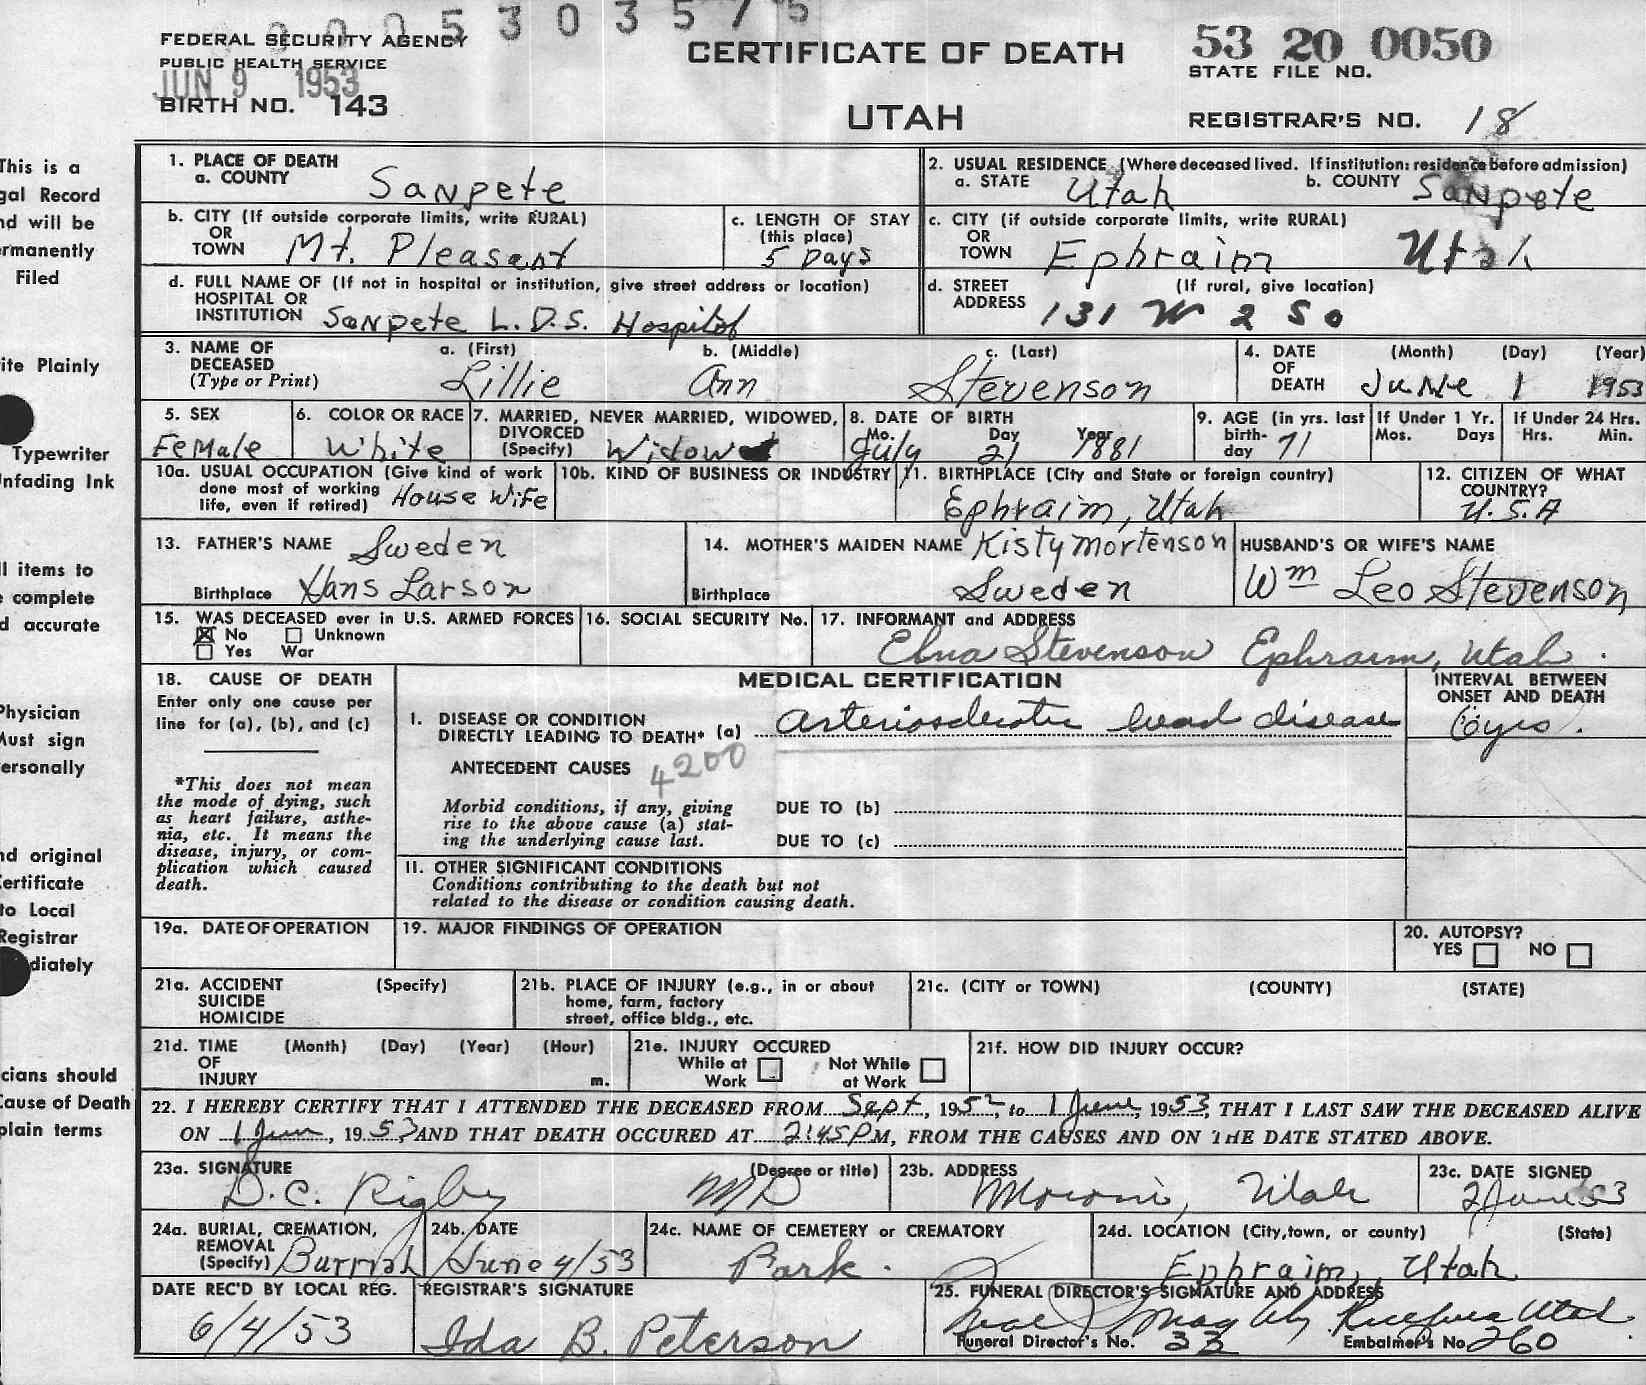 0 0 0 5 3 0 3 5 7 5
FEDERAL SECURITY AGENCY
PUBLIC HEALTH SERVICE
JUN 9 1953
BIRTH NO. 143
CERTIFICATE OF DEATH
UTAH
53 20 0050
STATE FILE NO.
REGISTRAR'S NO. 18
This is a
gal Record
nd will be
rmanently
Filed
ite Plainly
Typewriter
nfading Ink
ll items to
e complete
d accurate
Physician
Must sign
ersonally
nd original
Certificate
to Local
Registrar
diately
cians should
Cause of Death
plain terms
1. PLACE OF DEATH
a. COUNTY Sanpete
b. CITY (If outside corporate limits, write RURAL)
OR
TOWN Mt. Pleasant
c. LENGTH OF STAY
(this place)
5 Days
d. FULL NAME OF (If not in hospital or institution, give street address or location)
HOSPITAL OR
INSTITUTION Sanpete L.D.S. Hospital
2. USUAL RESIDENCE (Where deceased lived. If institution: residence before admission)
a. STATE Utah b. COUNTY Sanpete
c. CITY (if outside corporate limits, write RURAL)
OR
TOWN Ephraim Utah
d. STREET (If rural, give location)
ADDRESS 131 W 2 So
3. NAME OF DECEASED (Type or Print)
a. (First) b. (Middle) c. (Last)
Lillie Ann Stevenson
4. DATE OF DEATH (Month) (Day) (Year)
June 1 1953
5. SEX
Female
6. COLOR OR RACE
White
7. MARRIED, NEVER MARRIED, WIDOWED,
DIVORCED
(Specify) Widow
8. DATE OF BIRTH
Mo. Day Year
July 21 1881
9. AGE (in yrs. last
birth-
day 71
If Under 1 Yr.
Mos. Days
If Under 24 Hrs.
Hrs. Min.
10a. USUAL OCCUPATION (Give kind of work
done most of working
life, even if retired) House Wife
10b. KIND OF BUSINESS OR INDUSTRY
11. BIRTHPLACE (City and State or foreign country)
Ephraim, Utah
12. CITIZEN OF WHAT
COUNTRY?
U.S.A
13. FATHER'S NAME Sweden
Birthplace Hans Larson
14. MOTHER'S MAIDEN NAME Kisty Mortenson
Birthplace Sweden
HUSBAND'S OR WIFE'S NAME
Wm Leo Stevenson
15. WAS DECEASED ever in U.S. ARMED FORCES
No Unknown
Yes War
16. SOCIAL SECURITY No.
17. INFORMANT and ADDRESS
Elna Stevenson Ephraim, Utah.
18. CAUSE OF DEATH
Enter only one cause per
line for (a), (b), and (c)
*This does not mean
the mode of dying, such
as heart failure, asthe-
nia, etc. It means the
disease, injury, or com-
plication which caused
death.
MEDICAL CERTIFICATION
I. DISEASE OR CONDITION
DIRECTLY LEADING TO DEATH* (a) Arteriosclerotic head disease
INTERVAL BETWEEN
ONSET AND DEATH
6yrs.
ANTECEDENT CAUSES 4200
Morbid conditions, if any, giving
rise to the above cause (a) stat-
ing the underlying cause last.
DUE TO (b)
DUE TO (c)
II. OTHER SIGNIFICANT CONDITIONS
Conditions contributing to the death but not
related to the disease or condition causing death.
19a. DATE OF OPERATION
19. MAJOR FINDINGS OF OPERATION
20. AUTOPSY?
YES NO
21a. ACCIDENT (Specify)
SUICIDE
HOMICIDE
21b. PLACE OF INJURY (e.g., in or about
home, farm, factory
street, office bldg., etc.
21c. (CITY or TOWN) (COUNTY) (STATE)
21d. TIME (Month) (Day) (Year) (Hour)
OF
INJURY m.
21e. INJURY OCCURED
While at Work Not While at Work
21f. HOW DID INJURY OCCUR?
22. I HEREBY CERTIFY THAT I ATTENDED THE DECEASED FROM Sept, 1952, to 1 June, 1953, THAT I LAST SAW THE DECEASED ALIVE
ON 1 Jun, 1953 AND THAT DEATH OCCURED AT 2:45 P M, FROM THE CAUSES AND ON THE DATE STATED ABOVE.
23a. SIGNATURE (Degree or title)
D.C. Rigby MD
23b. ADDRESS
Moroni, Utah
23c. DATE SIGNED
2 June 53
24a. BURIAL, CREMATION,
REMOVAL
(Specify) Burrial
24b. DATE
June 4/53
24c. NAME OF CEMETERY or CREMATORY
Park.
24d. LOCATION (City, town, or county) (State)
Ephraim, Utah
DATE REC'D BY LOCAL REG.
6/4/53
REGISTRAR'S SIGNATURE
Ida B. Peterson
25. FUNERAL DIRECTOR'S SIGNATURE AND ADDRESS
Utah
Funeral Director's No. 33 Embalmer's No 260